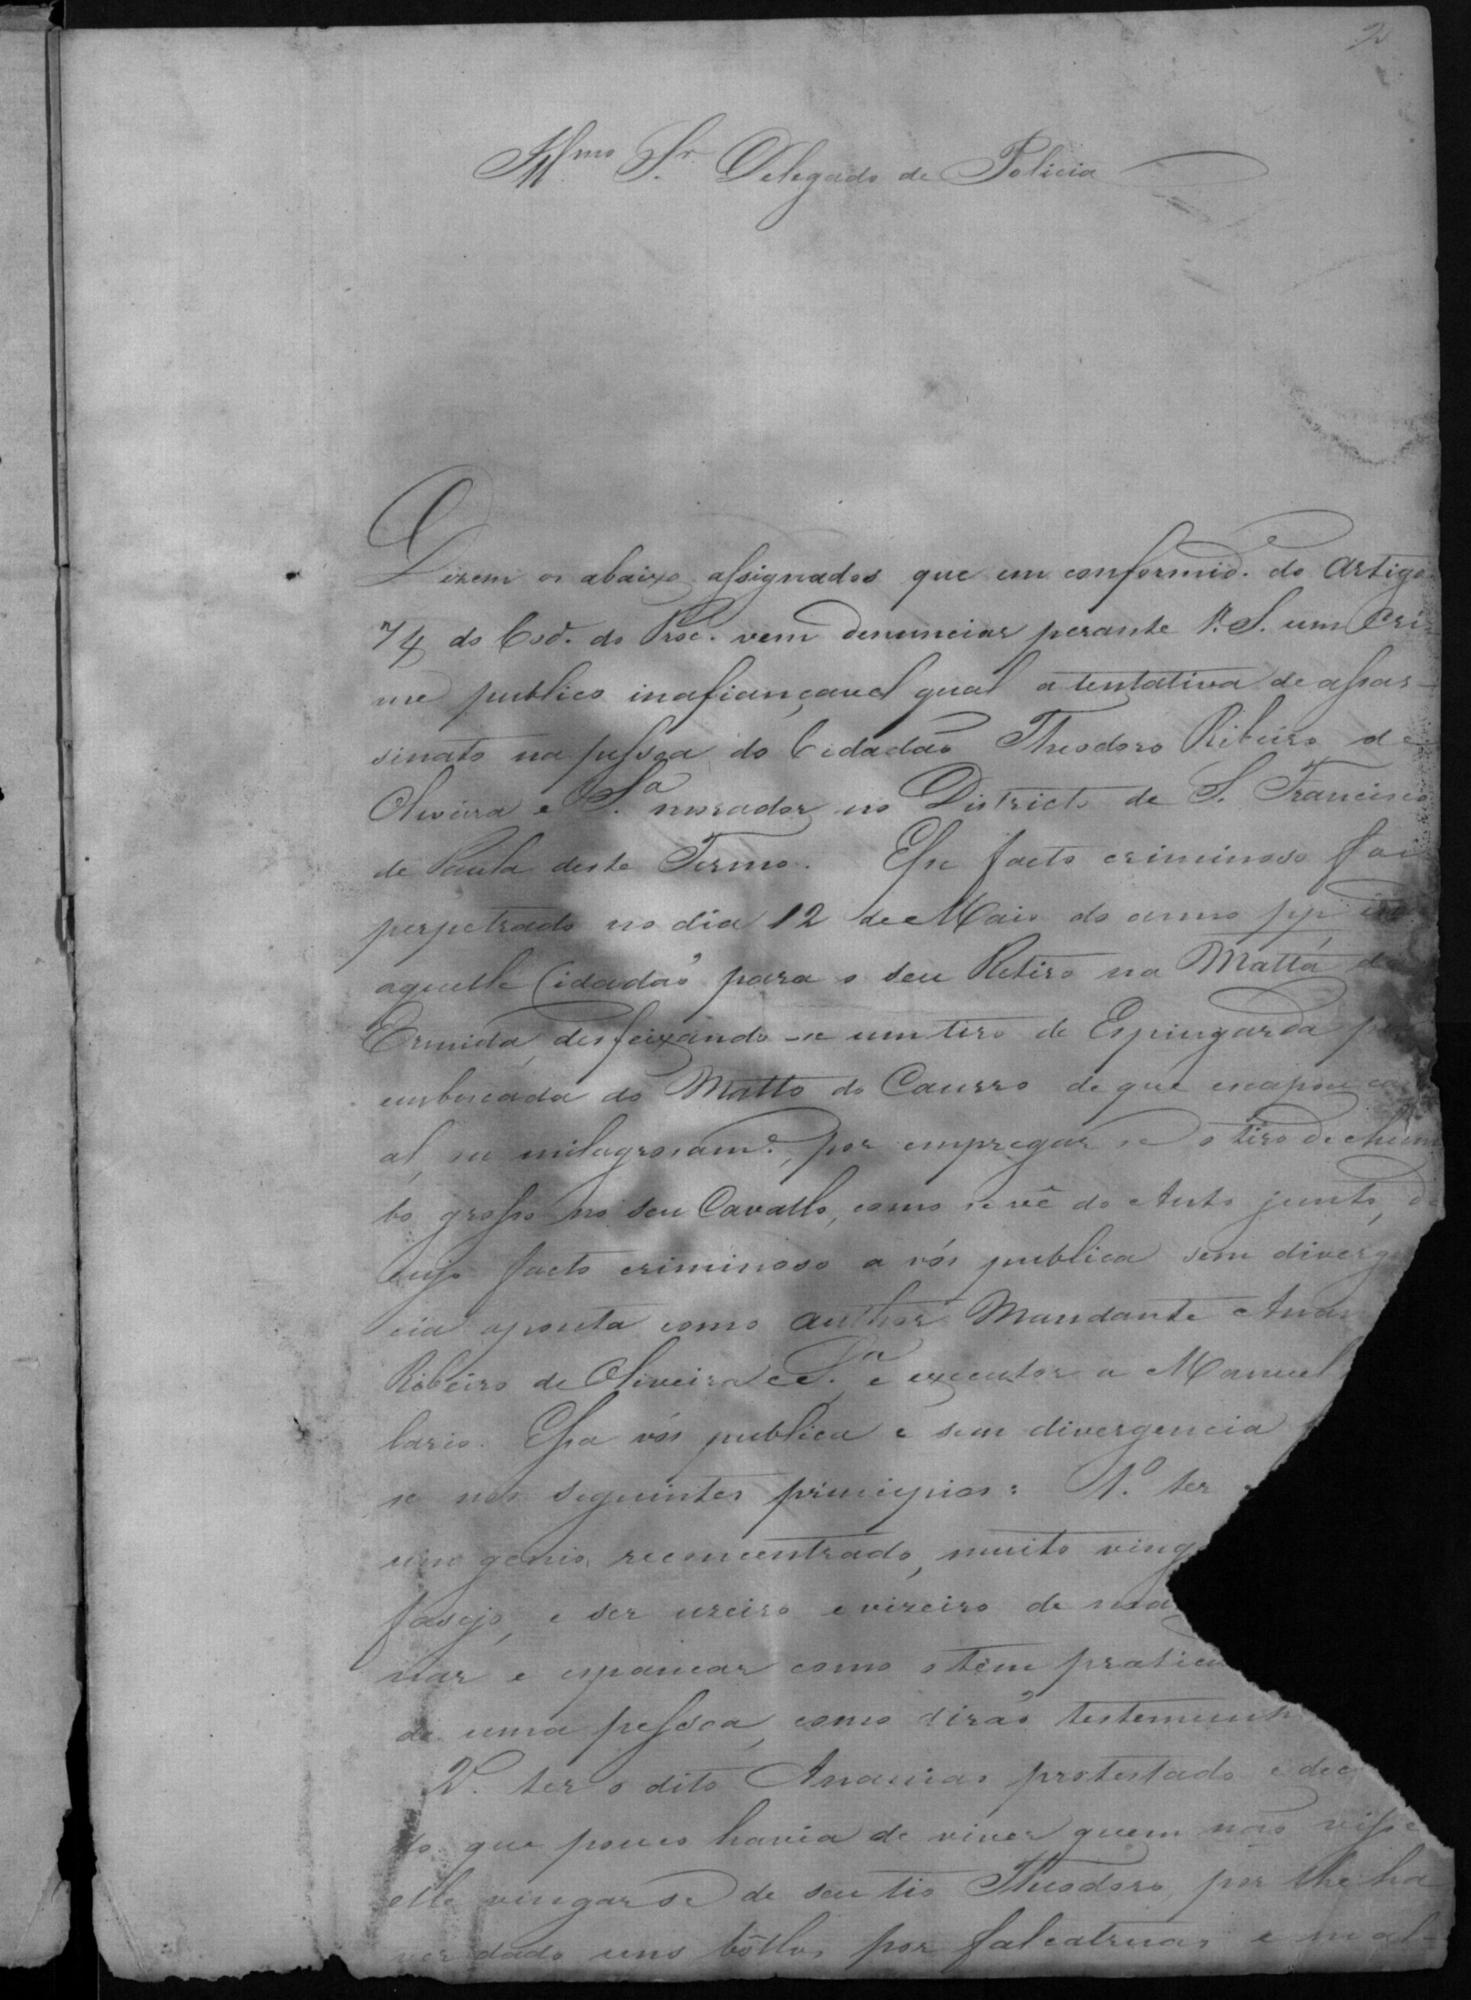 2
Illmo Sr. Delegado de Policia
Dizem os abaixo assignados que em conformid.e do Artigo
74 do Cod. do Proc. vem denunciar perante V. S. um Cri-
me publico inafiançavel qual a tentativa de assas-
sinato na pessoa do Cidadão Theodoro Ribeiro de
Oliveira e S.a morador no Districto de S. Francisco
de Paula deste Termo. Esse facto criminoso foi
perpetrado no dia 12 de Maio do anno pp indo
aquelle Cidadão para o seu Retiro na Matta da
Ermida, desfeixando-se um tiro de Espingarda
emboscada do Matto do de que escapou
al, ou milagrosam.e, por empregar se o tiro de chum
bo grosso no seu Cavallo, como se vê do Auto junto, de
cujo facto criminoso a vós publica sem diverge
cia aponta como author Mandante
Ribeiro de Oliveira e S.a e executor a Manuel
lario. Essa vós publica e sem divergencia
se nos seguintes principios: 1.o ter
um genio reconcentrado, muito ving
fasejo, e ser useiro e vizeiro de
nar e espancar como o tem pratica
de uma pessoa, como dirão testemunh
2.o ter o dito Ananias protestado e dec
do que pouco havia de viver quem não visse
elle vingar se de seu tio Theodoro, por lhe ha
ver dado uns bôllos por falcatruas e mal-